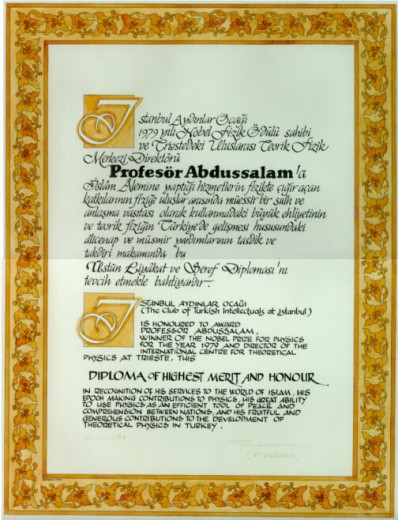 İstanbul Aydınlar Ocağı
1979 yılı Nobel Fizik Ödülü sahibi
ve Trieste'deki Uluslararası Teorik Fizik
Merkezi Direktörü
Profesör Abdussalam'a
İslâm Âlemine yaptığı hizmetlerin fizikte çığır açan
katkılarının fiziği uluslar arasında müessir bir sulh ve
anlaşma vasıtası olarak kullanmadaki büyük ehliyetinin
ve teorik fiziğin Türkiye'de gelişmesi hususundaki
âlicenap ve müsmir yardımlarının tasdik ve
takdiri makamında bu
Üstün Liyâkat ve Şeref Diploması'nı
tevcih etmekle bahtiyardır.
ISTANBUL AYDINLAR OCAĞI
(The Club of Turkish Intellectuals at Istanbul)
IS HONOURED TO AWARD
PROFESSOR ABDUSSALAM,
WINNER OF THE NOBEL PRIZE FOR PHYSICS
FOR THE YEAR 1979 AND DIRECTOR OF THE
INTERNATIONAL CENTRE FOR THEORETICAL
PHYSICS AT TRIESTE, THIS
DIPLOMA OF HIGHEST MERIT AND HONOUR
IN RECOGNITION OF HIS SERVICES TO THE WORLD OF ISLAM, HIS
EPOCH MAKING CONTRIBUTIONS TO PHYSICS, HIS GREAT ABILITY
TO USE PHYSICS AS AN EFFICIENT TOOL OF PEACE AND
COMPREHENSION BETWEEN NATIONS, AND HIS FRUITFUL AND
GENEROUS CONTRIBUTIONS TO THE DEVELOPMENT OF
THEORETICAL PHYSICS IN TURKEY.